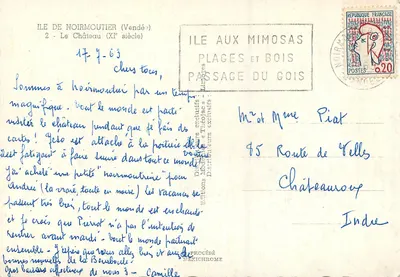 ILE DE NOIRMOUTIER (Vendée)
2 - Le Château (XIᵉ siècle)
17_7_63
Chers tous,
Sommes à Noirmoutier par un temps
magnifique. Tout le monde est parti
visiter le château pendant que je fais des
cartes! Yeso est attaché à la portière
est fatigant à faire suivre dans tout ce monde
J'ai acheté une petite "noirmoutrine" pour
Andrée (la vraie, toute en noire) les vacances se
passent très bien, tout le monde est enchanté
et je crois que Pierrot n'a pas l'intention de
rentrer avant mardi. tout le monde
ensemble. J'espère que vous allez bien et avez de
bonnes nouvelles de la Bourboule.
Bons baisers affectueux de nous 3 - Camille
ILE AUX MIMOSAS
PLAGES ET BOIS
PASSAGE DU GOIS
REPUBLIQUE FRANÇAISE
POSTES
0,20
Mr et Mme Piat
85 Route de Velles
Châteauroux
Indre